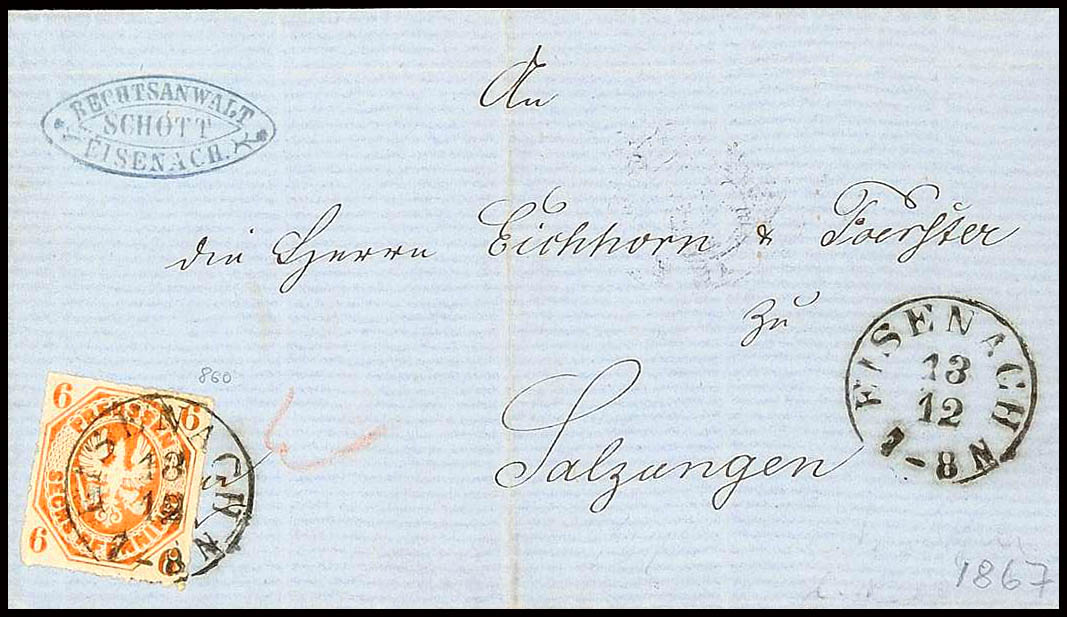 RECHTSANWALT
SCHOTT
EISENACH.
An
die Herrn Eichhorn & Foerster
zu
Salzungen
EISENACH
13
12
7-8 N
860
6 6
PREUSSEN
SECHS PFENNINGE
6 6
EISENACH
13
12
7-8 N
1867